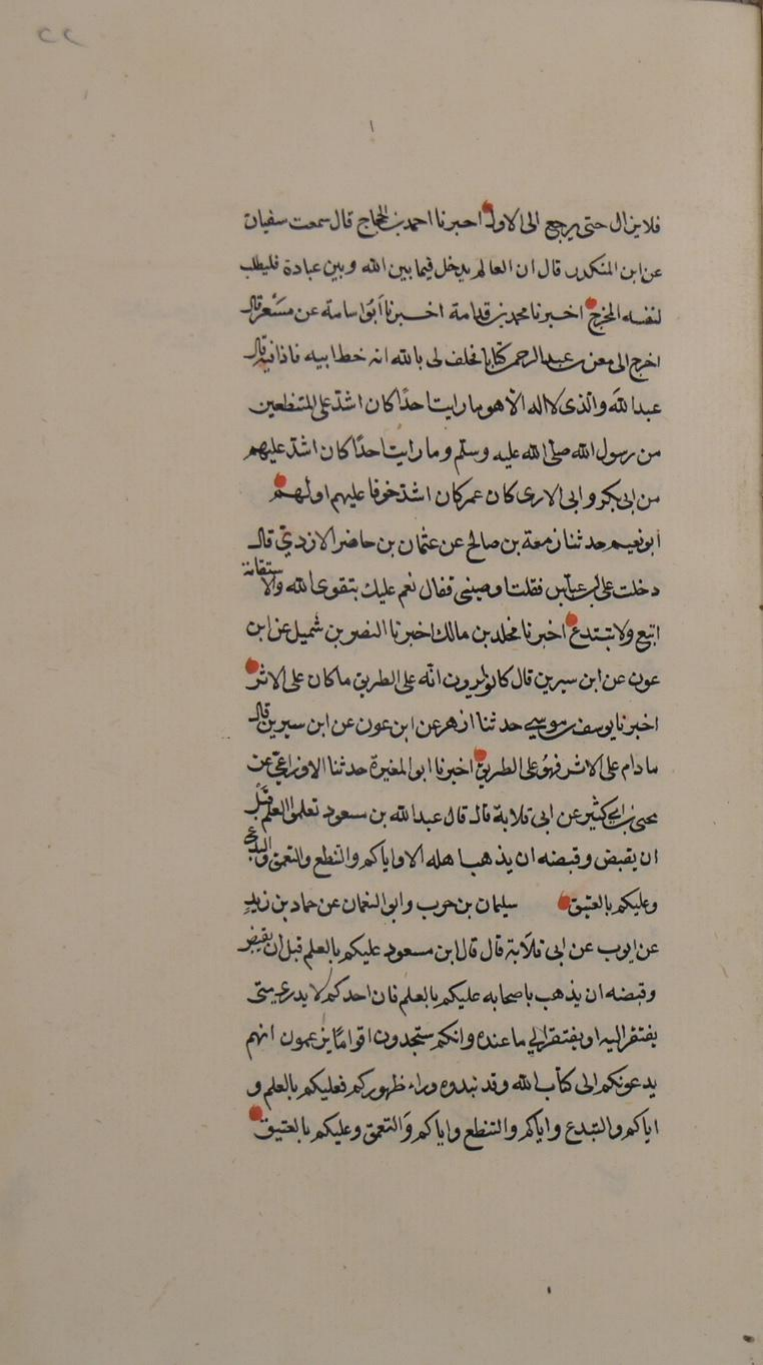 ٢٢
فلا يزال حتى يرجع الى الاول اخبرنا احمد بن الحجاج قال سمعت سفيان
عن ابن المنكدر قال ان العالم يدخل فيما بين الله وبين عبادة فليطلب
لنفسه المخرج اخبرنا محمد بن قدامة اخبرنا أبو اسامة عن مسعر قال
اخرج الى معن بن عبد الرحمن كتابا فحلف لى بالله انه خط ابيه فاذا فيه قال
عبد الله والذى لا اله الا هو ما رايت احدًا كان اشد على المتنطعين
من رسول الله صلى الله عليه وسلم وما رايت احدًا كان اشد عليهم
من ابى بكر وانى لارى كان عمر كان اشد خوفا عليهم او لهم
ابو نعيم حدثنا زمعة بن صالح عن عثمان بن حاضر الازدي قال
دخلت على ابن عباس فقلت اوصينى فقال نعم عليك بتقوى الله والاستقانة
اتبع ولا تبتدع اخبرنا مخلد بن مالك اخبرنا النضر بن شميل عن ابن
عون عن ابن سيرين قال كانوا يرون انه على الطريق ما كان على الاثر
اخبرنا يوسف بن موسي حدثنا ازهر عن ابن عون عن ابن سيرين قال
ما دام على الاثر فهو على الطريق اخبرنا ابو المغيرة حدثنا الاوزاعي عن
يحيى بن ابي كثير عن ابى قلابة قال قال عبد الله بن مسعود تعلموا العلم قبل
ان يقبض وقبضه ان يذهب اهله الا واياكم والتنطع والتعمق والبدع
وعليكم بالعتيق سليمان بن حرب وابو النعمان عن حماد بن زيد
عن ايوب عن ابى قلابة قال قال ابن مسعود عليكم بالعلم قبل ان يقبض
وقبضه ان يذهب باصحابه عليكم بالعلم فان احدكم لا يدرى متى
يفتقر اليه او يفتقر الي ما عنده وانكم ستجدون اقوامًا يزعمون انهم
يدعونكم الى كتاب الله وقد نبذوه وراء ظهوركم فعليكم بالعلم و
اياكم والتبدع واياكم والتنطع واياكم والتعمق وعليكم بالعتيق